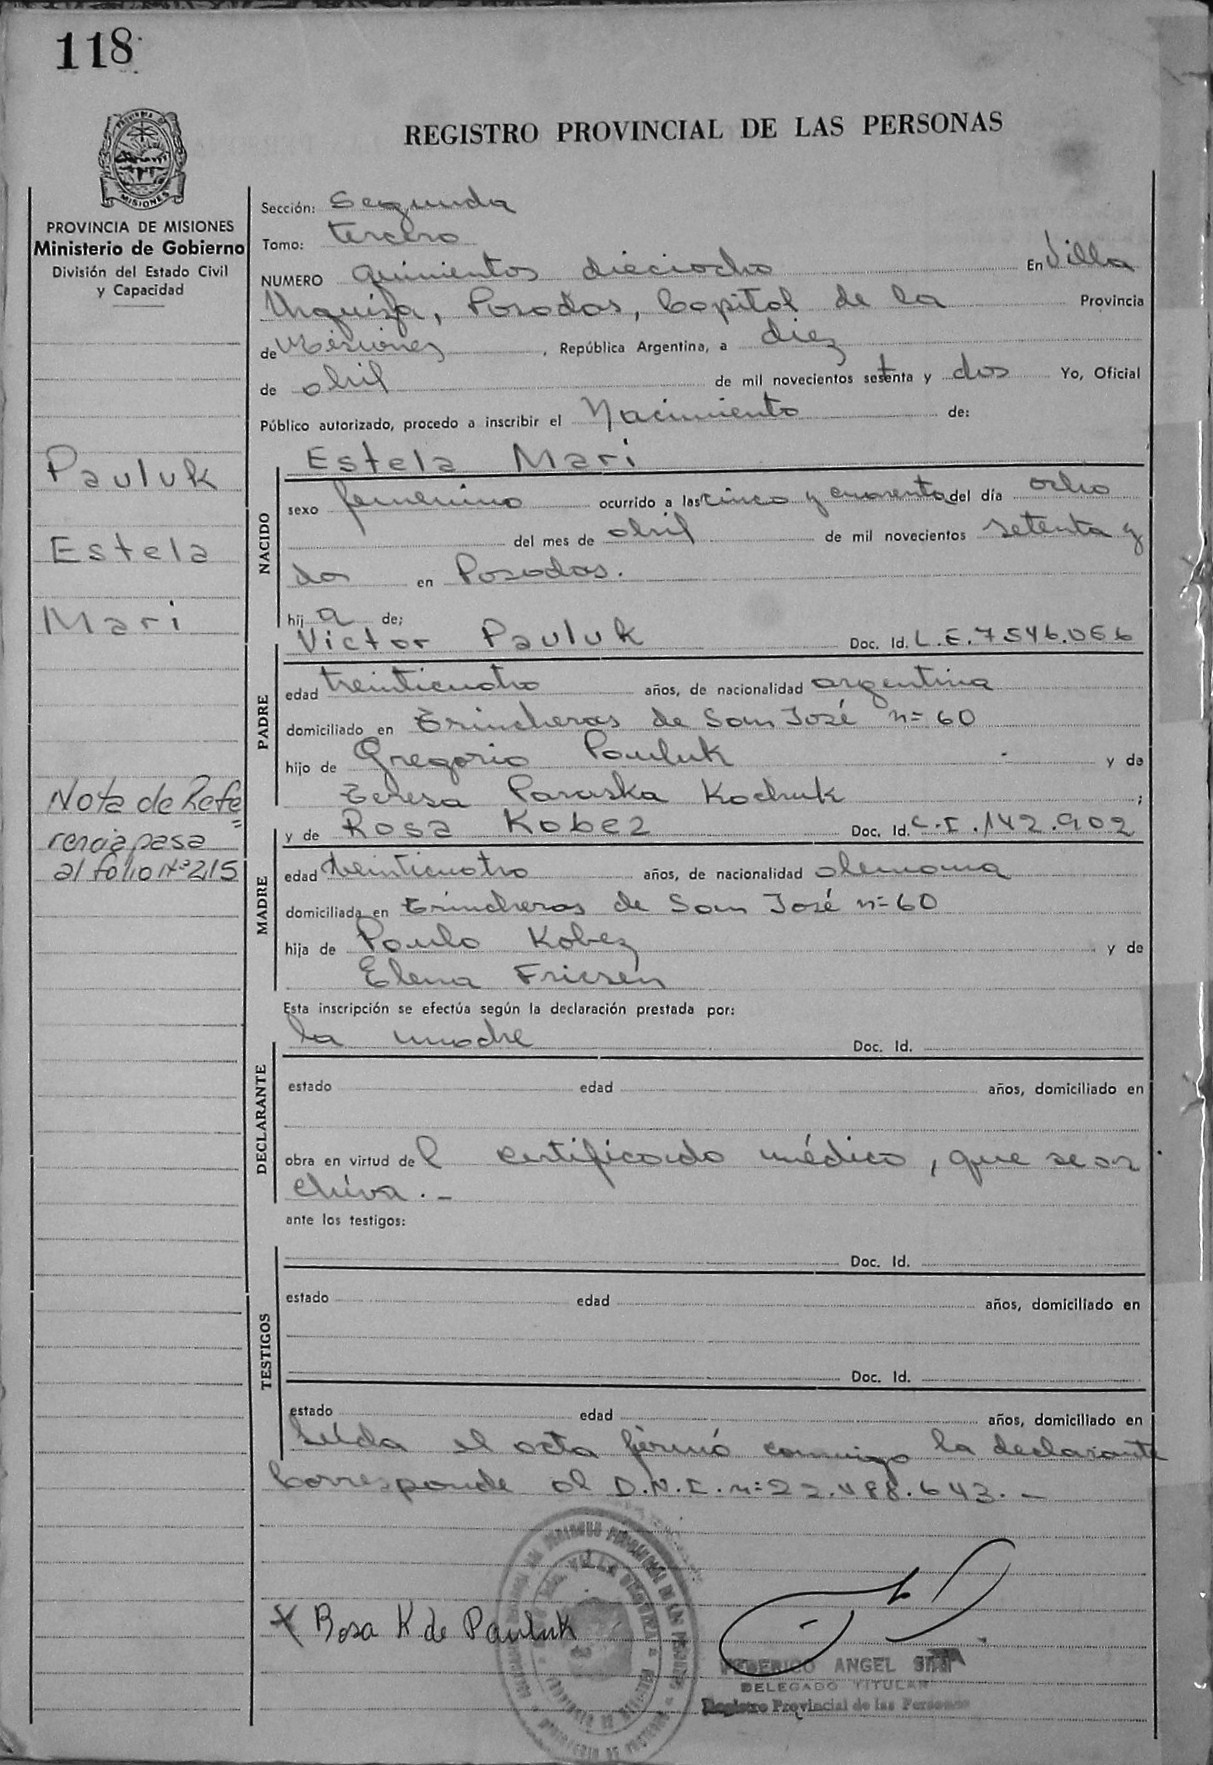 118
REGISTRO PROVINCIAL DE LAS PERSONAS
MISIONES
PROVINCIA DE MISIONES
Ministerio de Gobierno
División del Estado Civil
y Capacidad
Pauluk
Estela
Mari
Nota de Refe
rencia pasa
al folio Nº 215
Sección: Segunda
Tomo: tercero
NUMERO quinientos dieciocho En Villa
Urquiza, Posadas, Capital de la Provincia
de Misiones, República Argentina, a diez
de abril de mil novecientos setenta y dos Yo, Oficial
Público autorizado, procedo a inscribir el Nacimiento de:
Estela Mari
NACIDO
sexo femenino ocurrido a las cinco y cuarenta del día ocho
del mes de abril de mil novecientos setenta y
dos en Posadas.
hija de;
Victor Pauluk Doc. Id. L.E. 7.546.066
PADRE
edad treinticuatro años, de nacionalidad argentina
domiciliado en Trincheras de San José n= 60
hijo de Gregorio Pauluk y de
Teresa Paraska Kochuk ;
y de Rosa Kobez Doc. Id. C.I. 142.902
MADRE
edad treinticuatro años, de nacionalidad alemana
domiciliada en Trincheras de San José n= 60
hija de Paulo Kobez y de
Elena Friesen
Esta inscripción se efectúa según la declaración prestada por:
la madre Doc. Id.
DECLARANTE
estado edad años, domiciliado en
obra en virtud del certificado médico, que se ar
chiva. -
ante los testigos:
Doc. Id.
TESTIGOS
estado edad años, domiciliado en
Doc. Id.
estado edad años, domiciliado en
Leída el acta firmó conmigo la declarante
Corresponde al D.N.I. n= 22.488.643. -
Rosa K de Pauluk
FEDERICO ANGEL
DELEGADO TITULAR
Registro Provincial de las Personas